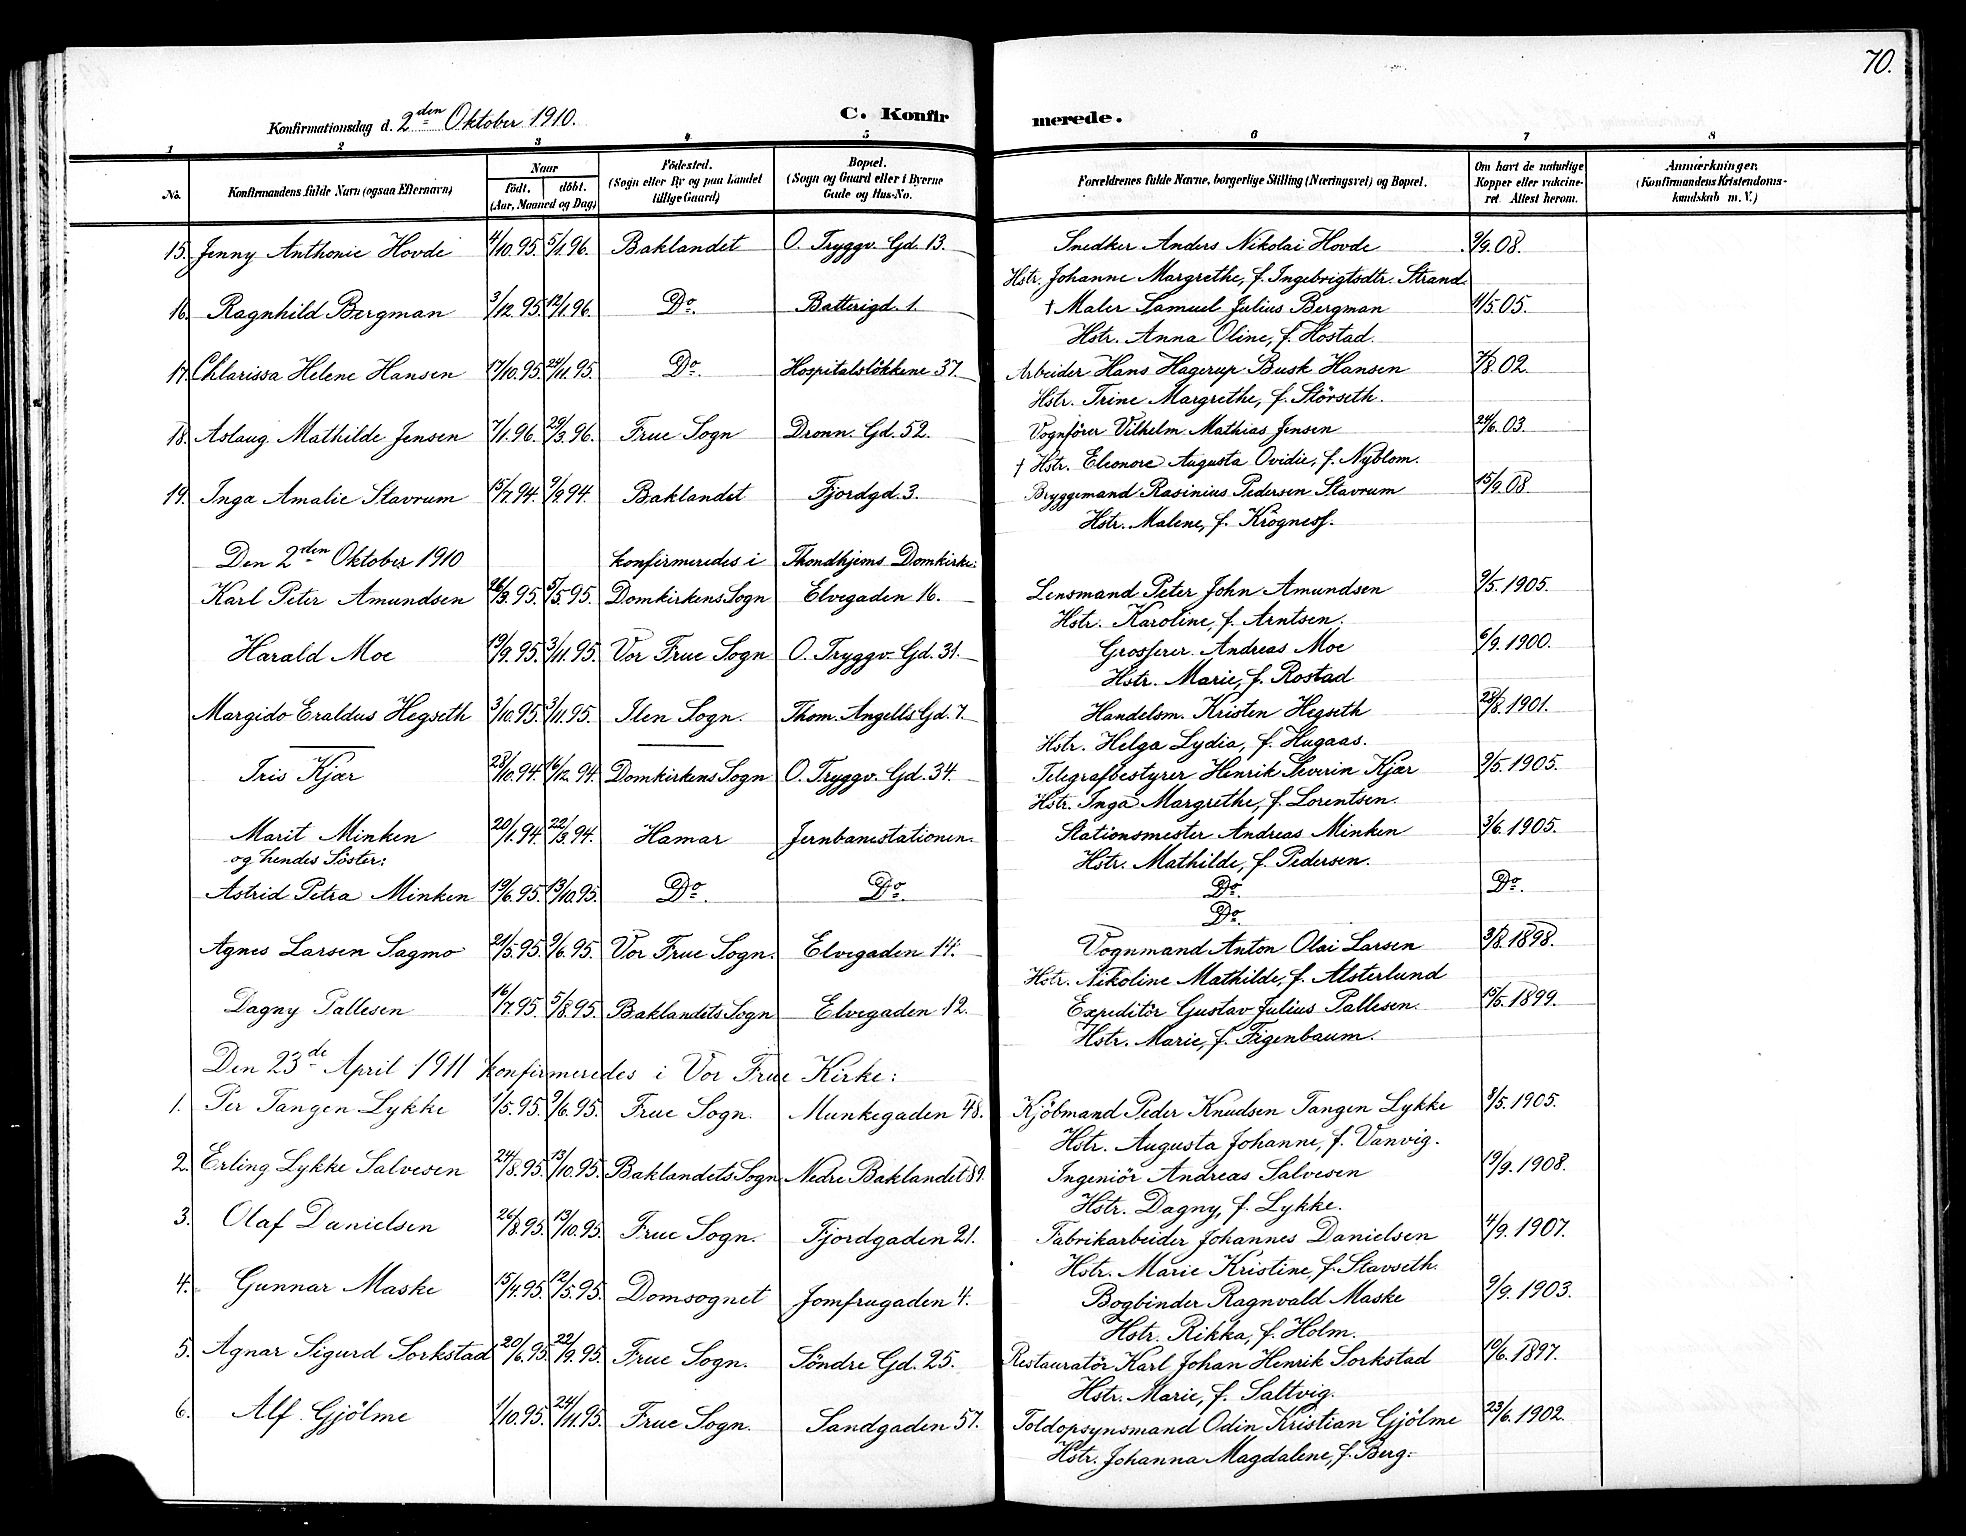 70.
Konfirmationsdag d. 2den Oktober 1910.
C. Konfirmerede.
1 2 3 4 5 6 7 8
No.
Konfirmandens fulde Navn (ogsaa Efternavn)
Naar
födt. döbt.
(Aar, Maaned og Dag)
Födested.
(Sogn eller By og paa Landet
tillige Gaard)
Bopæl.
(Sogn og Gaard eller i Byerne
Gade og Hus-No.
Forældrenes fulde Navne, borgerlige Stilling (Næringsvei) og Bopæl.
Om havt de naturlige
Kopper eller vakcine-
ret. Attest herom.
Anmærkninger,
(Konfirmandens Kristendoms-
kundskab m. V.)
15. Jenny Anthonie Hovde 4/10.95. 5/1.96. Baklandet O. Tryggv. Gd. 13. Snedker Anders Nikolai Hovde 9/9.08.
Hstr. Johanne Margrethe, f. Ingebrigtsdtr. Strand.
16. Ragnhild Bergman 3/12.95. 12/1.96. Do. Batterigd. 1. † Maler Samuel Julius Bergman 11/5.05.
Hstr. Anna Oline, f. Hostad.
17. Chlarissa Helene Hansen 17/10.95. 24/11.95. Do. Hospitalslökkene 37. Arbeider Hans Hagerup Busk Hansen 7/8.02.
Hstr. Trine Margrethe, f. Störseth.
18. Aslaug Mathilde Jensen 7/1.96. 29/3.96. Frue Sogn Dronn. Gd. 52. Vognförer Vilhelm Mathias Jensen 24/6.03.
† Hstr. Eleonore Augusta Ovidie, f. Nyblom.
19. Inga Amalie Stavrum 15/7.94. 9/9.94. Baklandet Fjordgd. 3. Bryggemand Rasinius Pedersen Stavrum 15/9.08.
Hstr. Malene, f. Krögness.
Den 2den Oktober 1910 konfirmeredes i Thondhjems Domkirke:
Karl Peter Amundsen 26/3.95. 5/5.95. Domkirkens Sogn Elvegaden 16. Lensmand Peter John Amundsen 9/5.1905.
Hstr. Karoline, f. Arntsen.
Harald Moe 19/9.95. 3/11.95. Vor Frue Sogn O. Tryggv. Gd. 31. Grosserer Andreas Moe 6/9.1900.
Hstr. Marie, f. Rostad
Margido Eraldus Hegseth 3/10.95. 3/11.95. Ilen Sogn. Thom. Angells Gd. 7. Handelsm. Kristen Hegseth 28/8.1901.
Hstr. Helga Lydia, f. Hugaas.
Iris Kjær 28/10.94. 16/12.94. Domkirkens Sogn O. Tryggv. Gd. 34. Telegrafbestyrer Henrik Severin Kjær 9/5.1905.
Hstr. Inga Margrethe, f. Lorentsen.
Marit Minken 20/1.94. 22/3.94. Hamar Jernbanestationen. Stationsmester Andreas Minken 3/6.1905.
og hendes Söster: Hstr. Mathilde, f. Pedersen.
Astrid Petra Minken 19/6.95. 13/10.95. Do. Do. Do. Do.
Do.
Agnes Larsen Sagmo 21/5.95. 9/6.95. Vor Frue Sogn. Elvegaden 14. Vognmand Anton Olai Larsen 3/8.1898.
Hstr. Nikoline Mathilde, f. Alsterlund
Dagny Pallesen 16/7.95. 5/8.95. Baklandets Sogn Elvegaden 12. Expeditör Gustav Julius Pallesen. 15/5.1899.
Hstr. Marie, f. Figenbaum.
Den 23de April 1911 konfirmeredes i Vor Frue Kirke:
1. Per Tangen Lykke 1/5.95. 9/6.95. Frue Sogn. Munkegaden 48. Kjöbmand Peder Knudsen Tangen Lykke 8/5.1905.
Hstr. Augusta Johanne, f. Vanvig.
2. Erling Lykke Salvesen 24/8.95. 13/10.95. Baklandets Sogn Nedre Baklandet 89. Ingeniör Andreas Salvesen 19/9.1908.
Hstr. Dagny, f. Lykke.
3. Olaf Danielsen 26/8.95. 13/10.95. Frue Sogn. Fjordgaden 21. Fabrikarbeider Johannes Danielsen 4/9.1907.
Hstr. Marie Kristine, f. Stavseth.
4. Gunnar Maske 15/4.95. 12/5.95. Domsognet Jomfrugaden 4. Bogbinder Ragnvald Maske 9/9.1903.
Hstr. Rikka, f. Holm.
5. Agnar Sigurd Sorkstad 20/6.95. 22/9.95. Frue Sogn. Söndre Gd. 25. Restauratör Karl Johan Henrik Sorkstad 10/6.1897.
Hstr. Marie, f. Saltvig.
6. Alf Gjölme 1/10.95. 24/11.95. Frue Sogn. Sandgaden 57. Toldopsynsmand Odin Kristian Gjölme 23/6.1902.
Hstr. Johanna Magdalene, f. Berg.